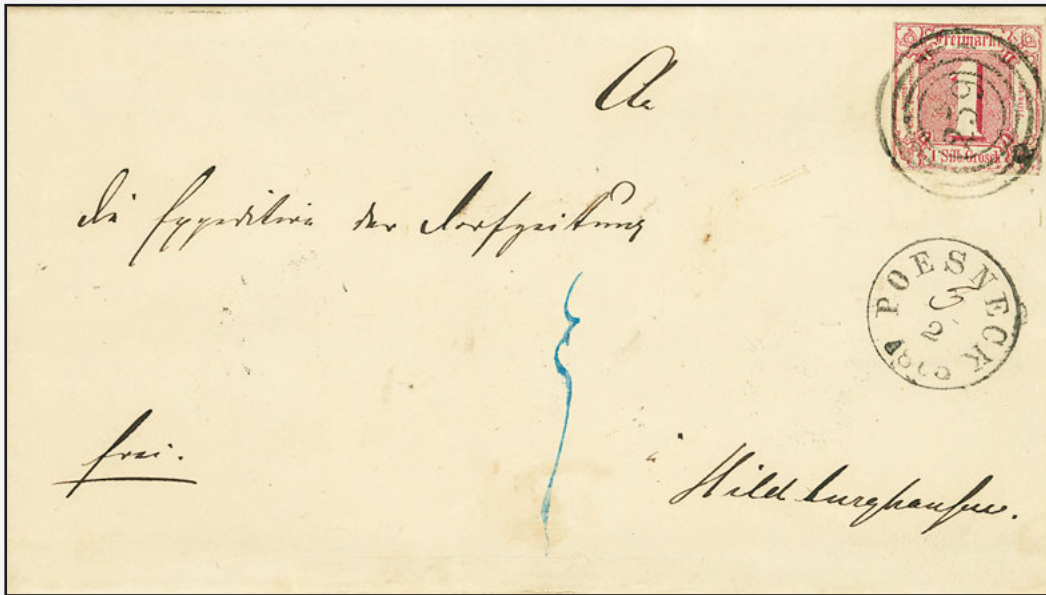 Freimarke
1
1 Silb. Grosch.
An
die Expedition der Dorfzeitung
POESNECK
5
2
frei.
à
Hildburghausen.